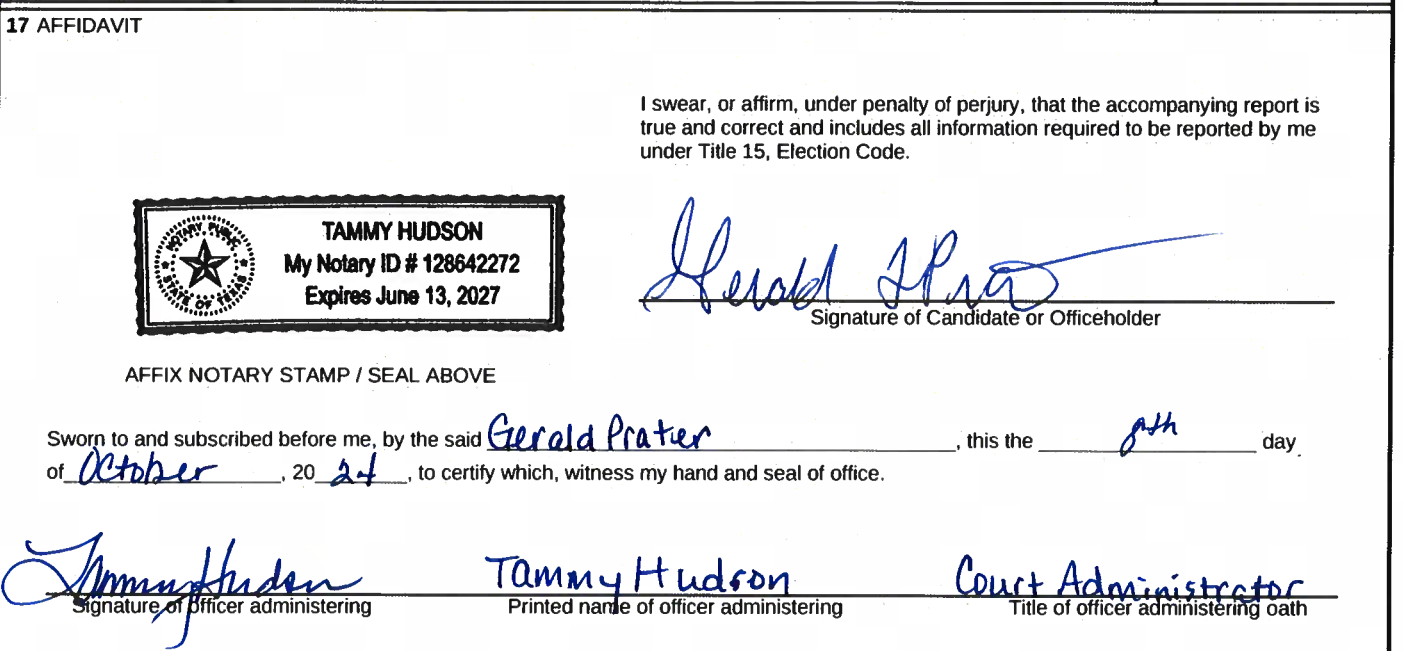 17 AFFIDAVIT
I swear, or affirm, under penalty of perjury, that the accompanying report is
true and correct and includes all information required to be reported by me
under Title 15, Election Code.
NOTARY PUBLIC
STATE OF TEXAS
TAMMY HUDSON
My Notary ID # 128642272
Expires June 13, 2027
Gerald
Signature of Candidate or Officeholder
AFFIX NOTARY STAMP / SEAL ABOVE
Sworn to and subscribed before me, by the said Gerald Prater, this the day
of October, 20 24, to certify which, witness my hand and seal of office.
Tammy Hudson Tammy Hudson Court Administrator
Signature of officer administering Printed name of officer administering Title of officer administering oath